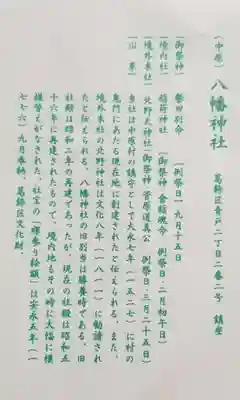 (中原) 八幡神社
葛飾区青戸二丁目二番二号 鎮座
(御祭神) 誉田別命 (例祭日) 九月十五日
(境内社) 稲荷神社 (御祭神 倉稲魂命 例祭日・二月初午日)
(境外末社) 北野天神社 (御祭神 菅原道真公 例祭日・三月二十五日)
(由来) 当社は中原村の鎮守として大永七年(一五二七)に村の
鬼門にあたる現在地に創建されたと伝えられる。また、
境外末社の北野天神社は文化八年(一八一一)に勧請され
たと伝えられる。八幡神社の旧別当は勝養寺である。旧
社殿は昭和二年の再建であったが、現在の社殿は昭和五
十六年に再建されたもので、境内地もその時に大幅に模
様替えがなされた。社宝の「曙参り絵額」は安永五年(一
七七六)九月奉納。葛飾区文化財。